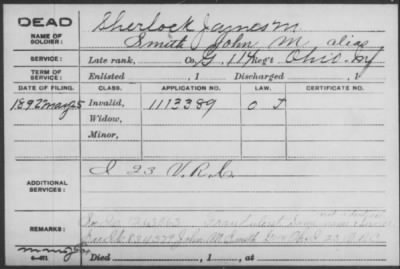 DEAD
NAME OF SOLDIER:
Sherlock James M
Smith John M alias
SERVICE: Late rank, Co. G. 114 Reg't Ohio Inf
TERM OF SERVICE: Enlisted , 1 Discharged , 1
DATE OF FILING. CLASS. APPLICATION NO. LAW. CERTIFICATE NO.
1892 May 25 Invalid, 1113389 O J
Widow,
Minor,
ADDITIONAL SERVICES: I 23 V.R.C.
REMARKS:
John M Smith
Died , 1 , at